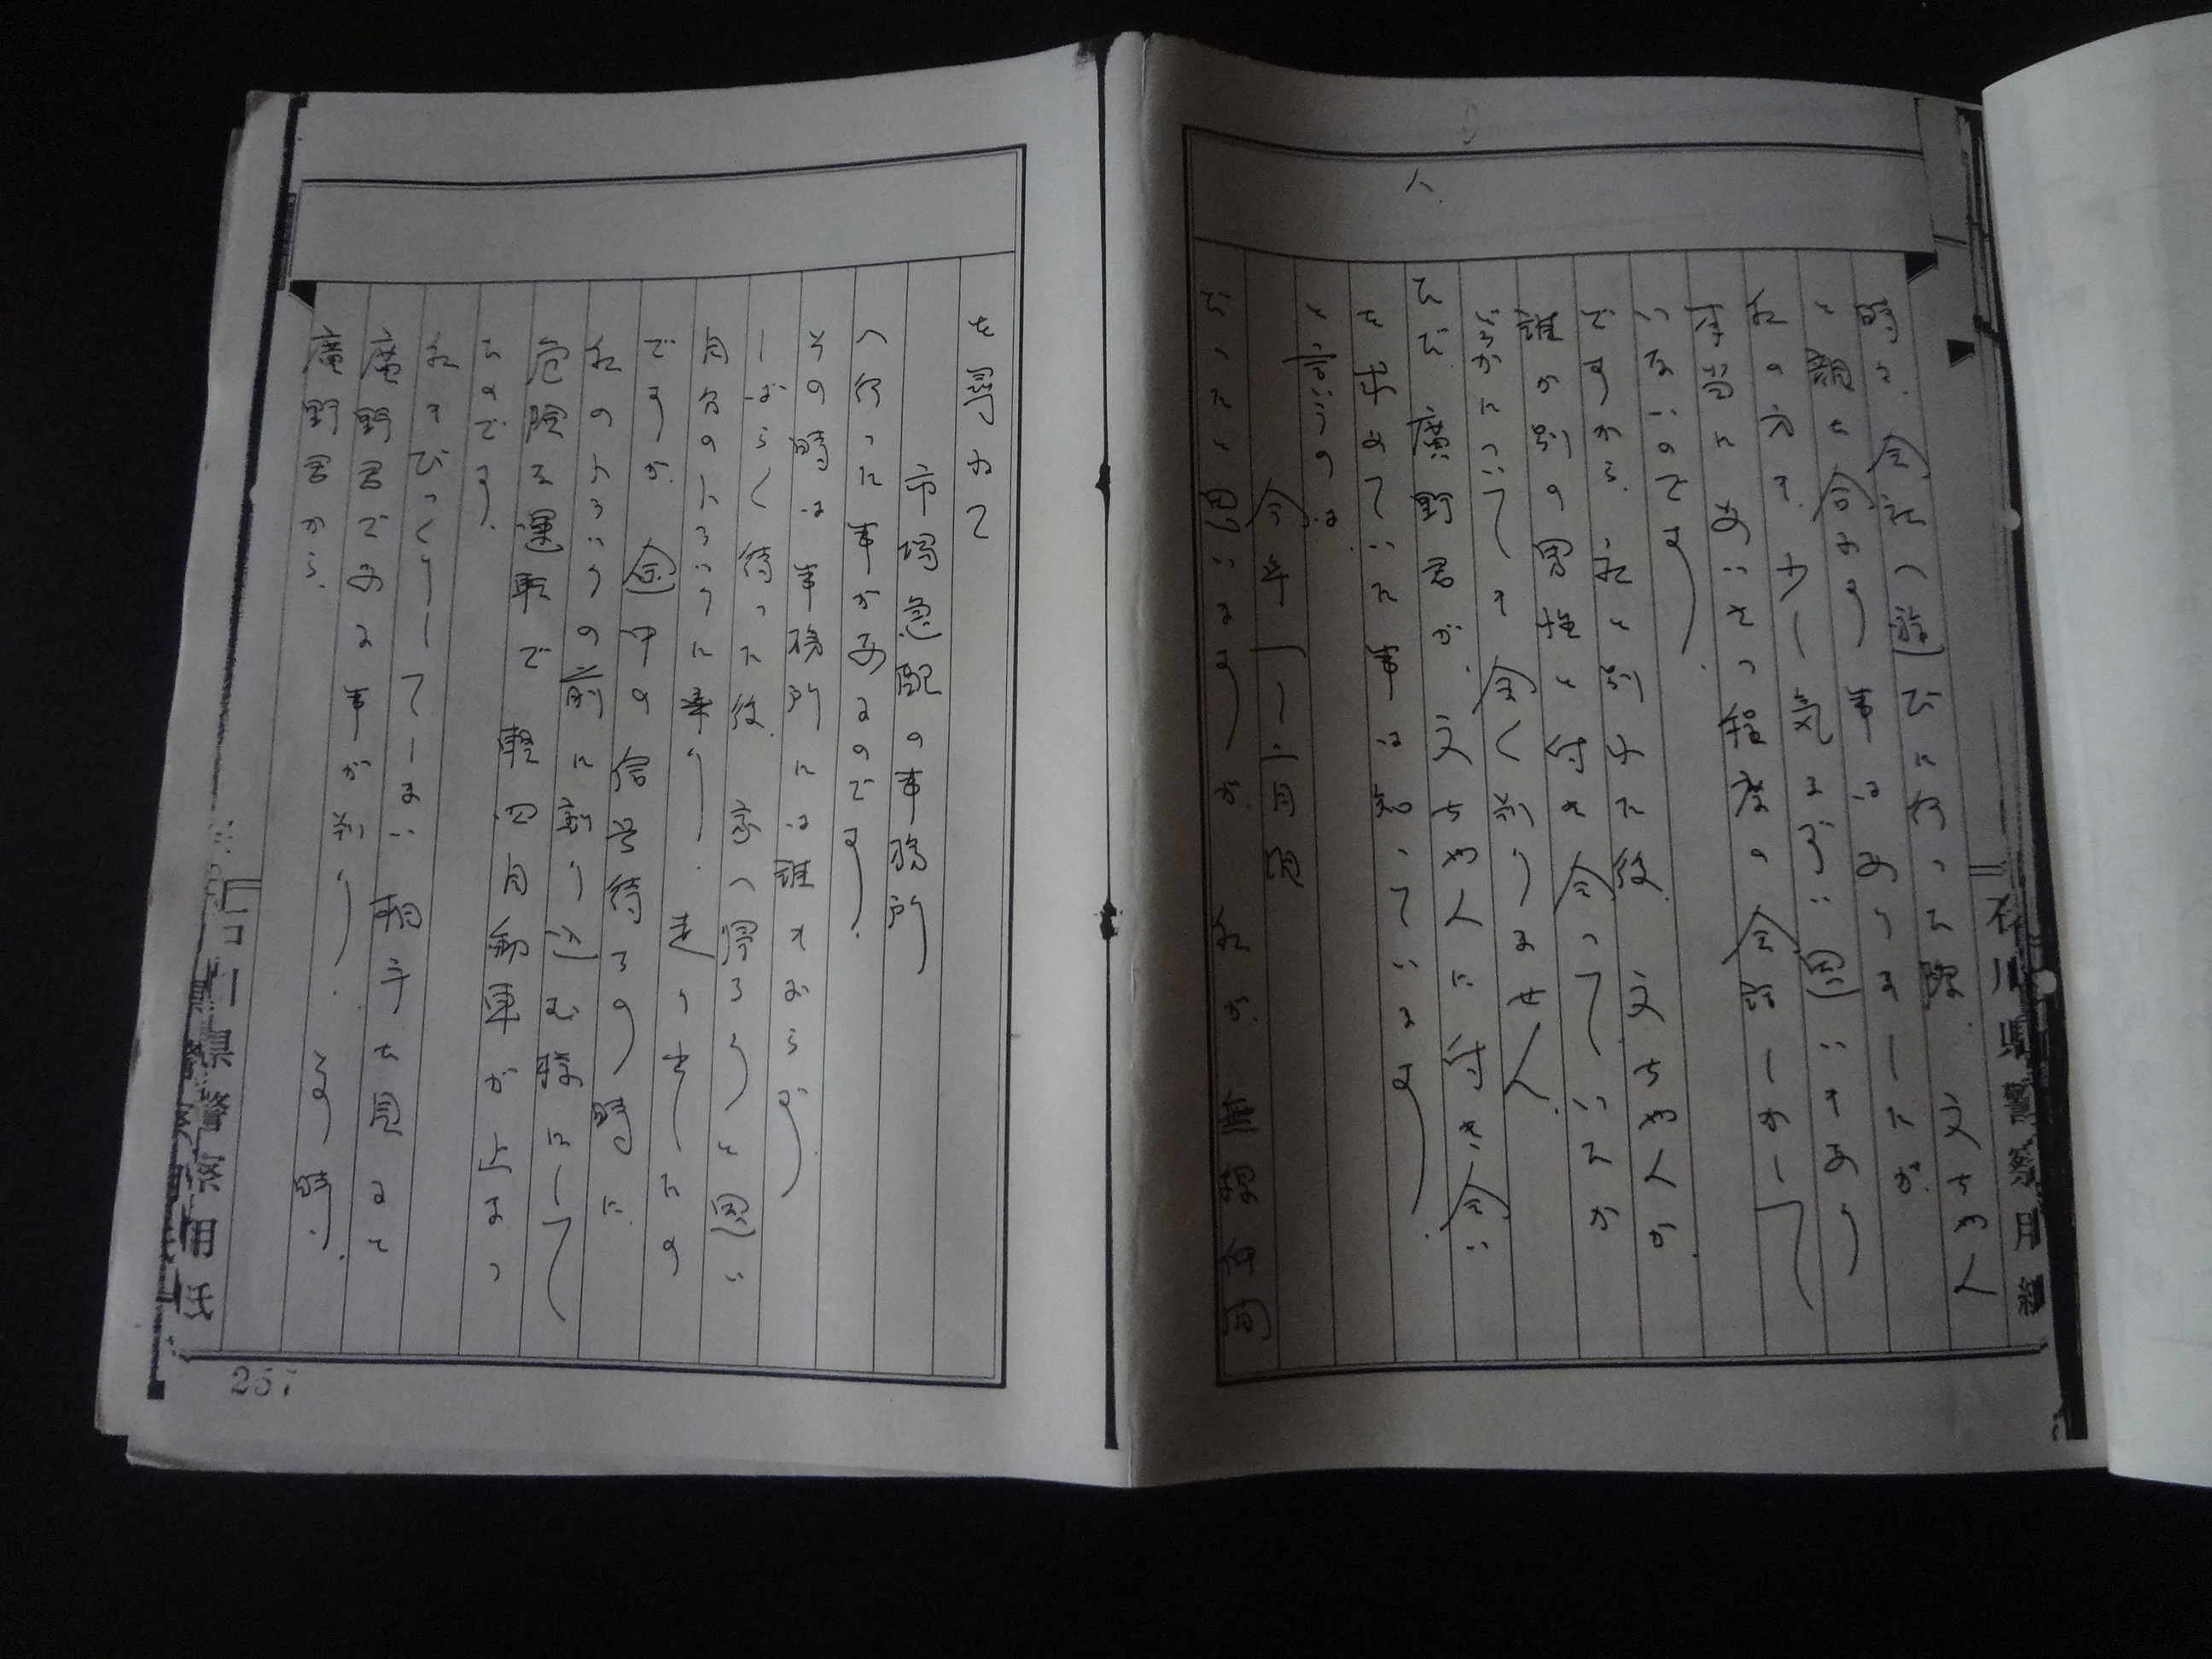 石川県警察用紙
時に、会社へ遊びに行った際、文ちゃん
と顔を合せる事はありましたが、
私の方も少し気まずい思いもあり
本当にあいさつ程度の会話しかして
いないのです。
ですから、私と別れた後、文ちゃんが
誰か別の男性と付き合っていたか
どうかについても、全く判りません。
ただ、廣野君が、文ちゃんに付き合い
を求めていた事は知っています。
と言うのは
今年一月二日頃
だったと思いますが、私が、
を過ぎて
市場急配の事務所
へ行った事があるのです。
その時は事務所には誰もおらず、
しばらく待った後、家へ帰ろうと思い
自分のトラックに乗り、走り出したの
ですが、途中の信号待ちの時に、
私のトラックの前に割り込む様にして
危険な運転で軽四自動車が止まっ
たのです。
私もびっくりしてしまい、相手を見ると
廣野君である事が判り、その時、
廣野君から、
石川県警察用紙
257